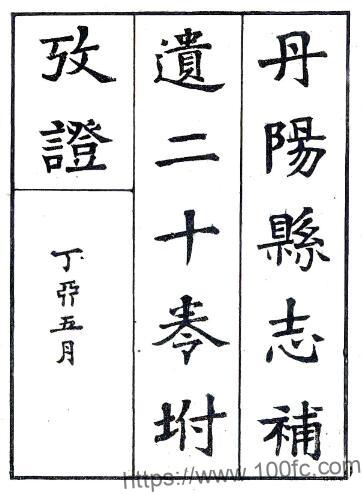 丹陽縣志補
遺二十卷坿
攷證
丁亥五月
https://www.100fc.com